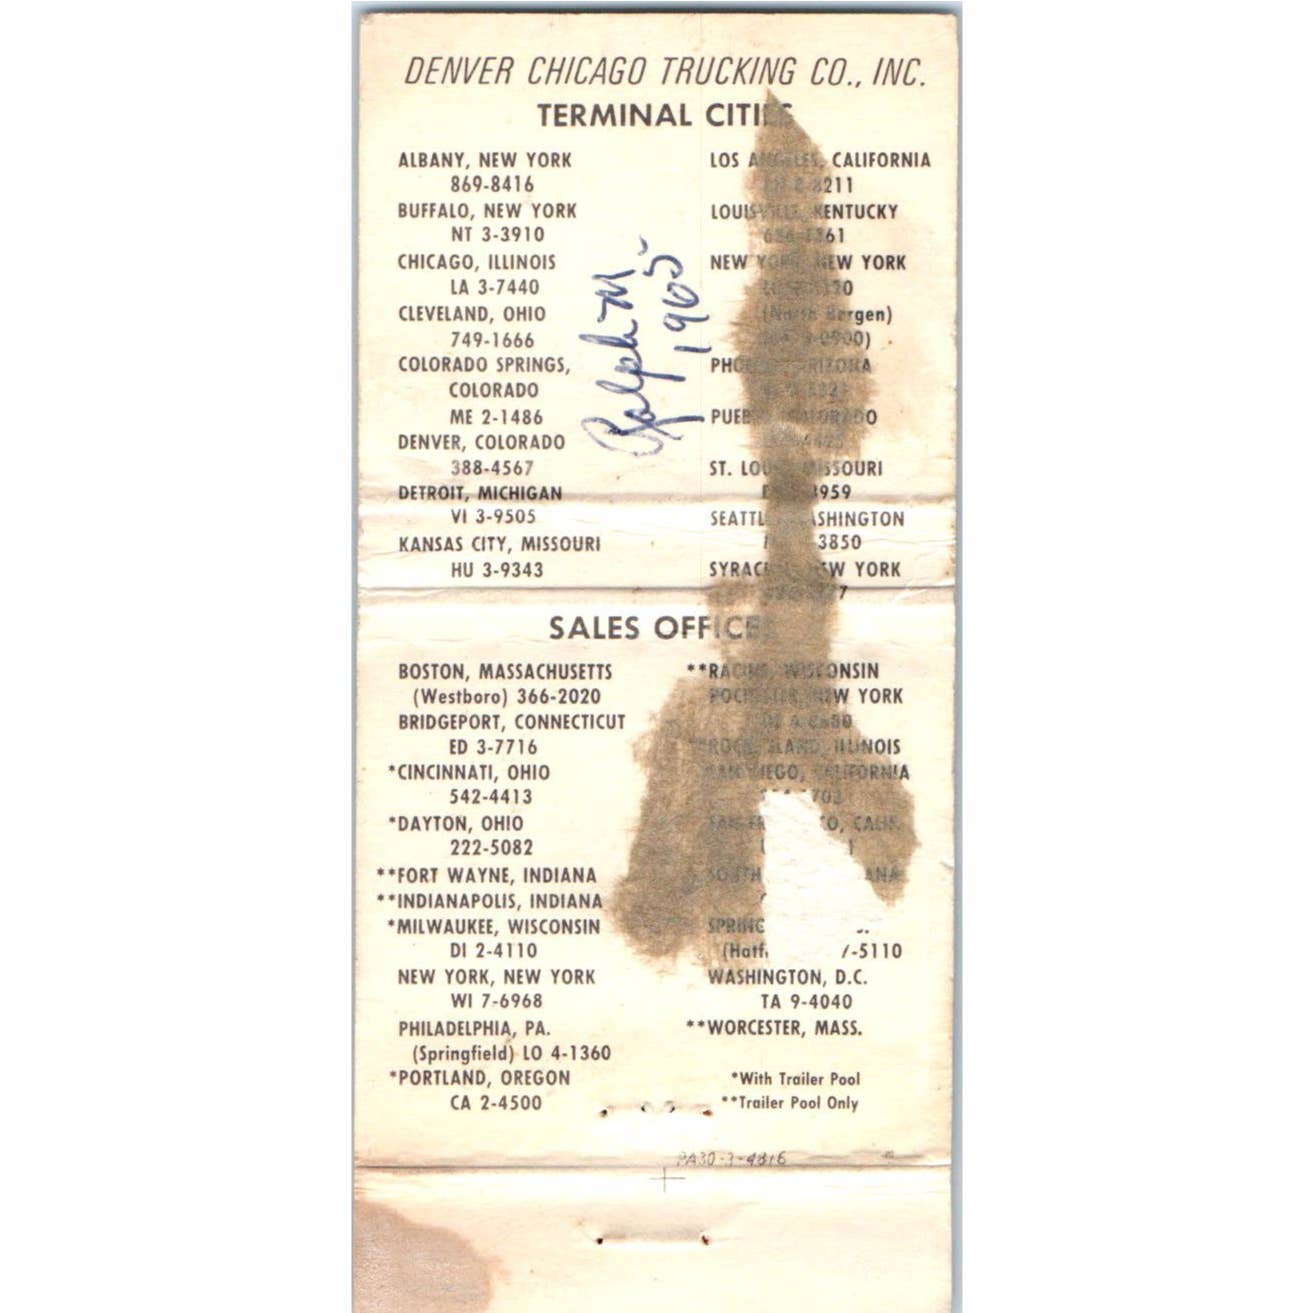 DENVER CHICAGO TRUCKING CO., INC.
TERMINAL CITIES
ALBANY, NEW YORK
869-8416
BUFFALO, NEW YORK
NT 3-3910
CHICAGO, ILLINOIS
LA 3-7440
CLEVELAND, OHIO
749-1666
COLORADO SPRINGS,
COLORADO
ME 2-1486
DENVER, COLORADO
388-4567
DETROIT, MICHIGAN
VI 3-9505
KANSAS CITY, MISSOURI
HU 3-9343
LOS ANGELES, CALIFORNIA
LOUISVILLE, KENTUCKY
NEW YORK, NEW YORK
(North Bergen)
PHOENIX, ARIZONA
PUEBLO, COLORADO
ST. LOUIS, MISSOURI
SEATTLE, WASHINGTON
SYRACUSE, NEW YORK
Ralph M
1965
SALES OFFICES
BOSTON, MASSACHUSETTS
(Westboro) 366-2020
BRIDGEPORT, CONNECTICUT
ED 3-7716
*CINCINNATI, OHIO
542-4413
*DAYTON, OHIO
222-5082
**FORT WAYNE, INDIANA
**INDIANAPOLIS, INDIANA
*MILWAUKEE, WISCONSIN
DI 2-4110
NEW YORK, NEW YORK
WI 7-6968
PHILADELPHIA, PA.
(Springfield) LO 4-1360
*PORTLAND, OREGON
CA 2-4500
**RACINE, WISCONSIN
ROCHESTER, NEW YORK
ROCK ISLAND, ILLINOIS
SAN DIEGO, CALIFORNIA
CALIF.
SOUTH
-5110
WASHINGTON, D.C.
TA 9-4040
**WORCESTER, MASS.
*With Trailer Pool
**Trailer Pool Only
PA30-3-4816